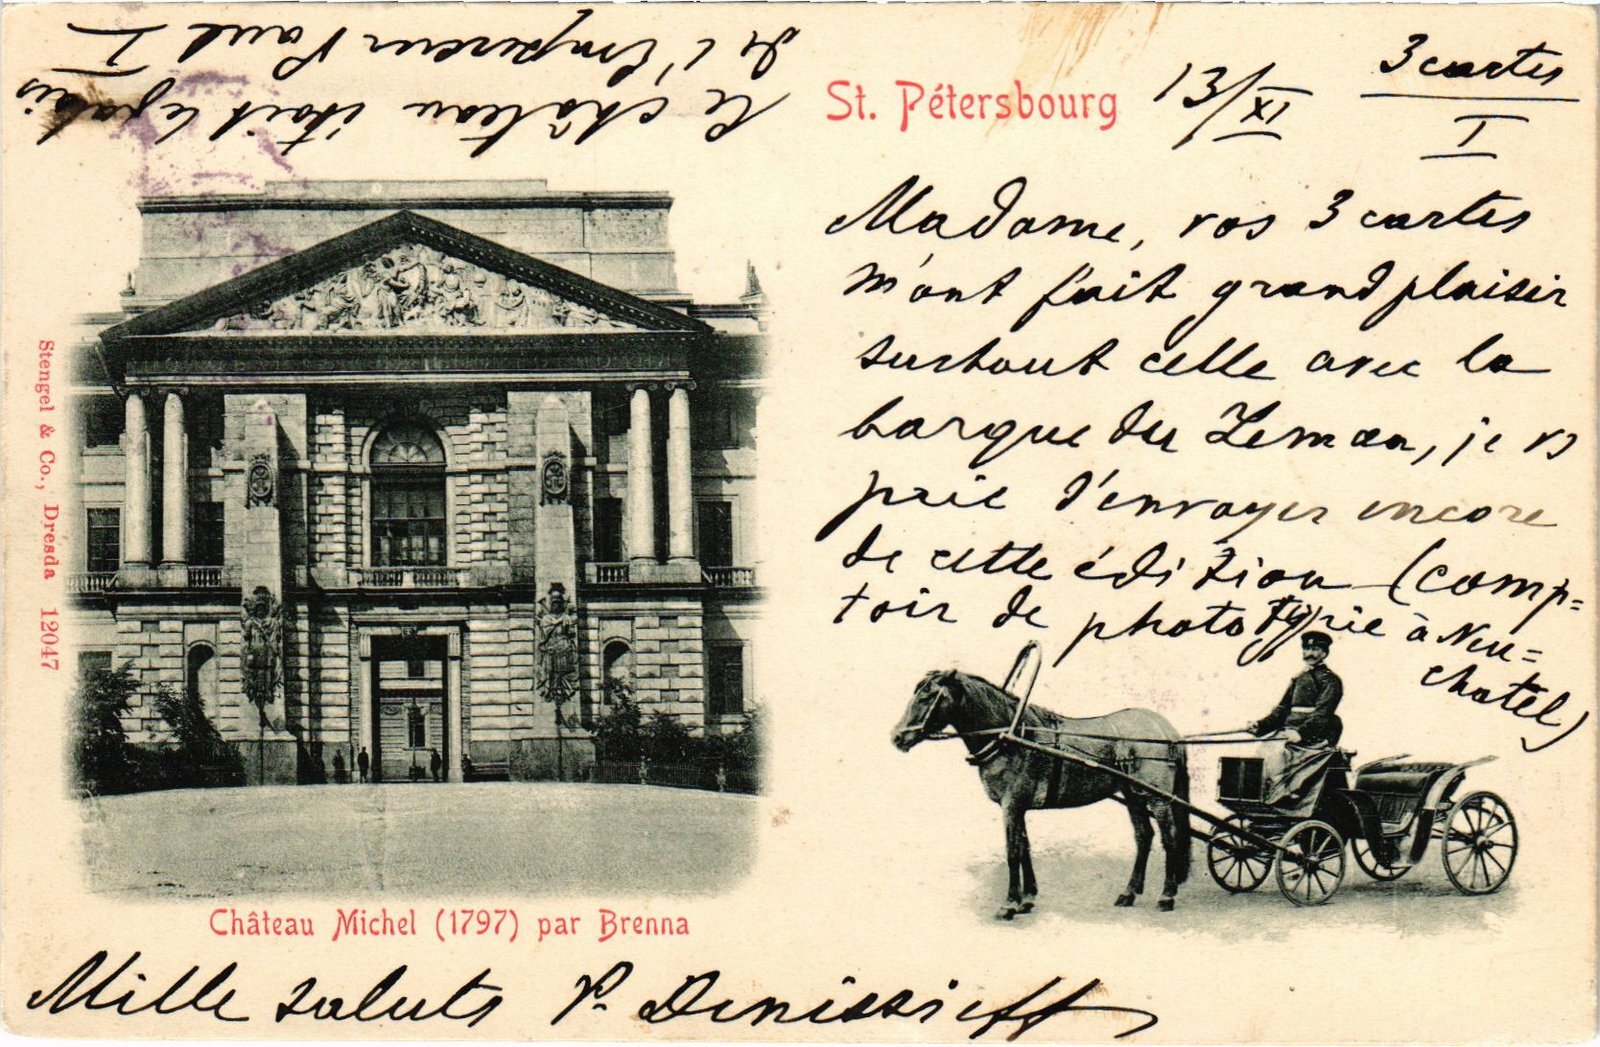 Le château était le palais
de l'Empereur Paul I
St. Pétersbourg
13/XI
3 cartes
I
Madame, vos 3 cartes
m'ont fait grand plaisir
surtout celle avec la
barque du Leman, je vs
prie d'envoyer encore
de cette édition (comp=
toir de phototypie à Neu=
chatel)
Stengel & Co., Dresda 12047
Château Michel (1797) par Brenna
Mille saluts P. Denissieff